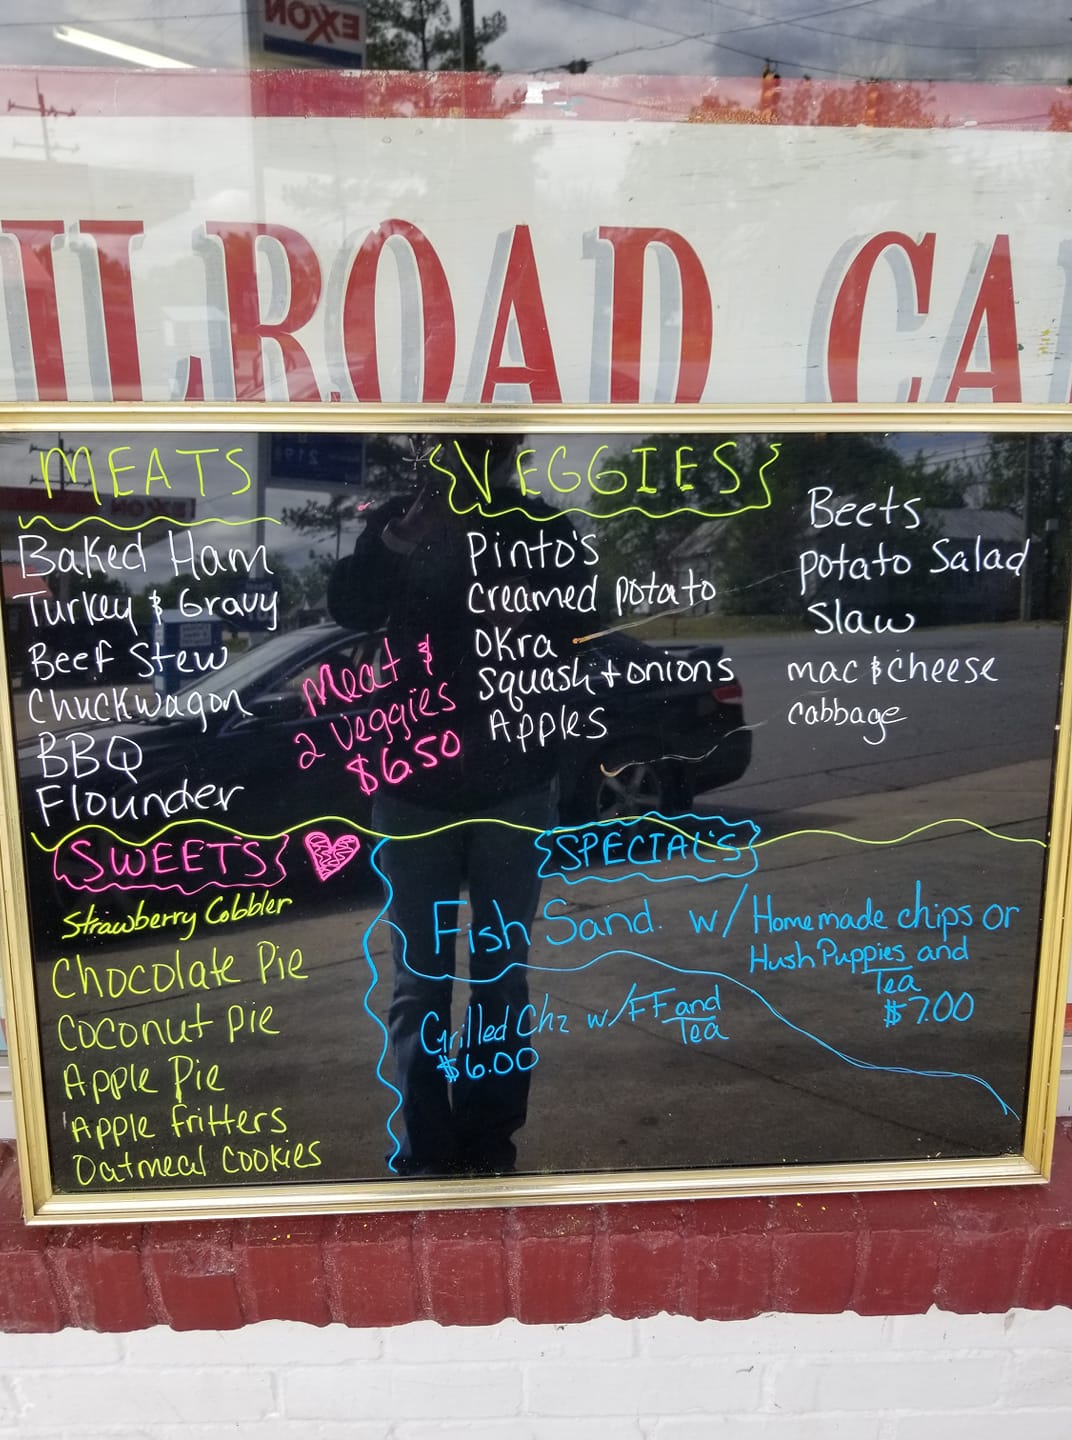 EXXON
ILROAD CA
MEATS
Baked Ham
Turkey & Gravy
Beef Stew
Chuckwagon
BBQ
Flounder
Meat &
2 Veggies
$6.50
VEGGIES
Pinto's
Creamed potato
Okra
Squash + onions
Apples
Beets
Potato Salad
Slaw
mac & cheese
cabbage
SWEET'S
Strawberry Cobbler
Chocolate Pie
Coconut Pie
Apple Pie
Apple fritters
Oatmeal Cookies
SPECIAL'S
Fish Sand. w/ Homemade chips or
Hush Puppies and
Tea
$7.00
Grilled Chz w/ FF and
Tea
$6.00